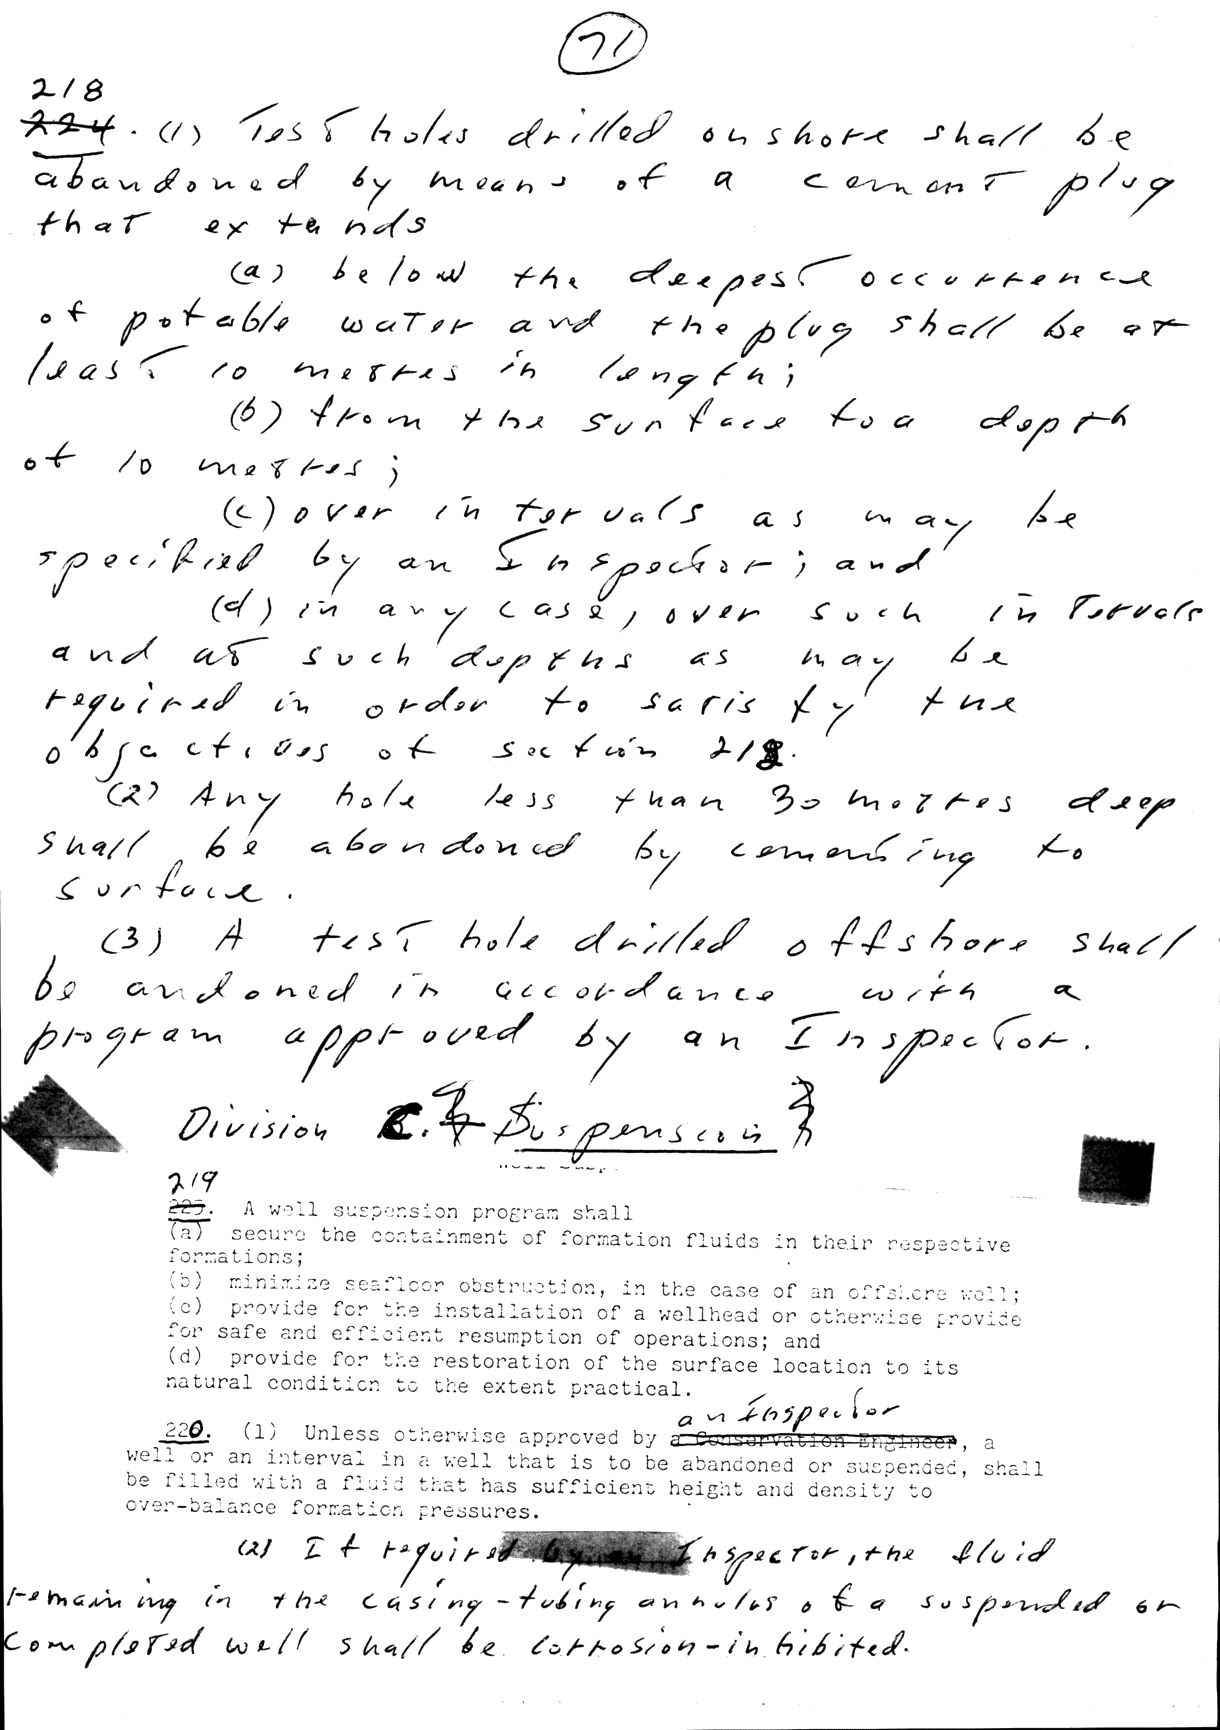 71
218
224. (1) Test holes drilled onshore shall be
abandoned by means of a cement plug
that extends
(a) below the deepest occurrence
of potable water and the plug shall be at
least 10 metres in length;
(b) from the surface to a depth
of 10 metres;
(c) over intervals as may be
specified by an Inspector; and
(d) in any case, over such intervals
and at such depths as may be
required in order to satisfy the
objectives of section 218.
(2) Any hole less than 30 metres deep
shall be abandoned by cementing to
surface.
(3) A test hole drilled offshore shall
be andoned in accordance with a
program approved by an Inspector.
Division C. Suspension
219
225. A well suspension program shall
(a) secure the containment of formation fluids in their respective
formations;
(b) minimize seafloor obstruction, in the case of an offshore well;
(c) provide for the installation of a wellhead or otherwise provide
for safe and efficient resumption of operations; and
(d) provide for the restoration of the surface location to its
natural condition to the extent practical.
an Inspector
220. (1) Unless otherwise approved by a Conservation Engineer, a
well or an interval in a well that is to be abandoned or suspended, shall
be filled with a fluid that has sufficient height and density to
over-balance formation pressures.
(2) If required by an Inspector, the fluid
remaining in the casing-tubing annulus of a suspended or
completed well shall be corrosion-inhibited.